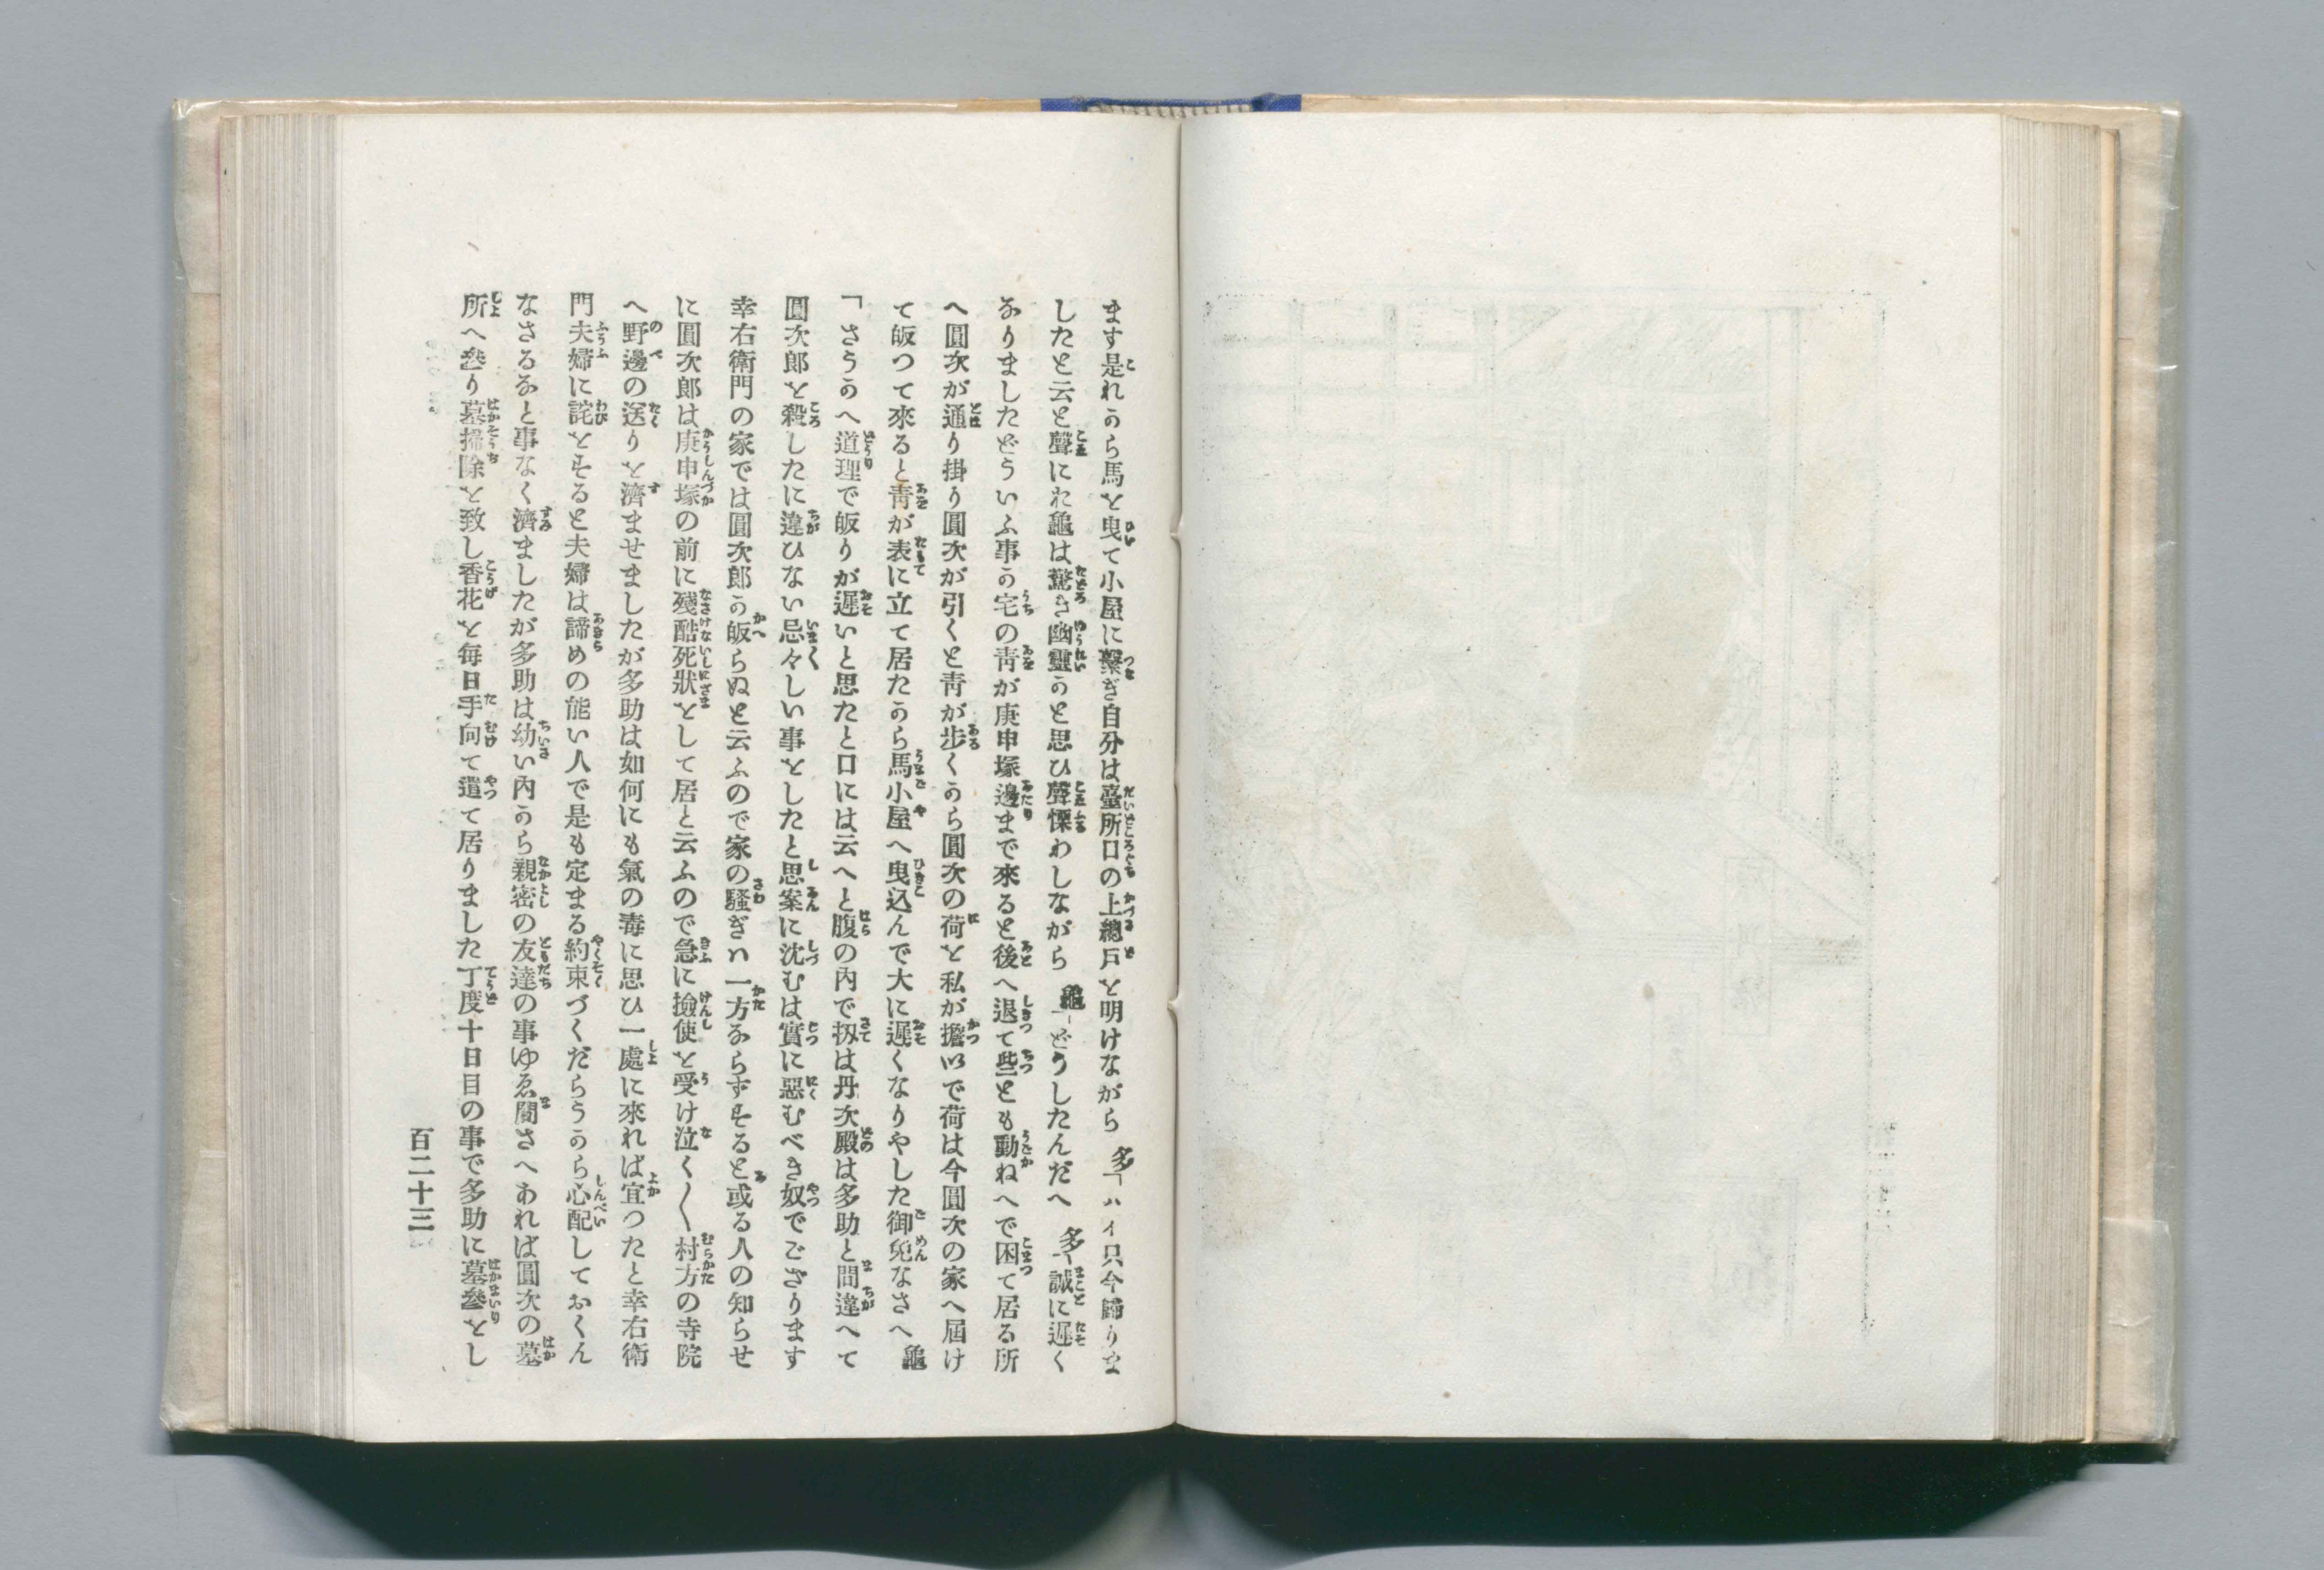 ます是れから馬を曳て小屋に繋ぎ自分は臺所口の上總戸を明けながら　多「ハイ只今歸りま
したと云ふ聲にお龜は驚き幽靈かと思ひ聲慄わしながら　龜「どうしたんだへ　多「誠に遲く
なりましたどういふ事か宅の靑が庚申塚邊まで來ると後へ退て些とも動ねへで困て居る所
へ圓次が通り掛り圓次が引くと靑が歩くから圓次の荷を私が擔いで荷は今圓次の家へ屆け
て皈つて來ると靑が表に立て居たから馬小屋へ曳込んで大に遲くなりやした御免なさへ　龜
「さうかへ道理で皈りが遲いと思たと口には云へと腹の內で扨は丹次殿は多助と間違へて
圓次郎を殺したに違ひない忌々しい事をしたと思案に沈むは實に惡むべき奴でござります
幸右衛門の家では圓次郎が皈らぬと云ふので家の騷ぎハ一方ならずすると或る人の知らせ
に圓次郎は庚申塚の前に殘酷死狀をして居と云ふので急に撿使を受け泣く〱村方の寺院
へ野邊の送りを濟ませましたが多助は如何にも氣の毒に思ひ一處に來れば宜つたと幸右衛
門夫婦に詫をすると夫婦は諦めの能い人で是も定まる約束づくだらうから心配しておくん
なさるなと事なく濟ましたが多助は幼い內から親密の友達の事ゆゑ間さへあれば圓次の墓
所へ參り墓掃除を致し香花を每日手向て遣て居りました丁度十日目の事で多助に墓參をし
百二十三